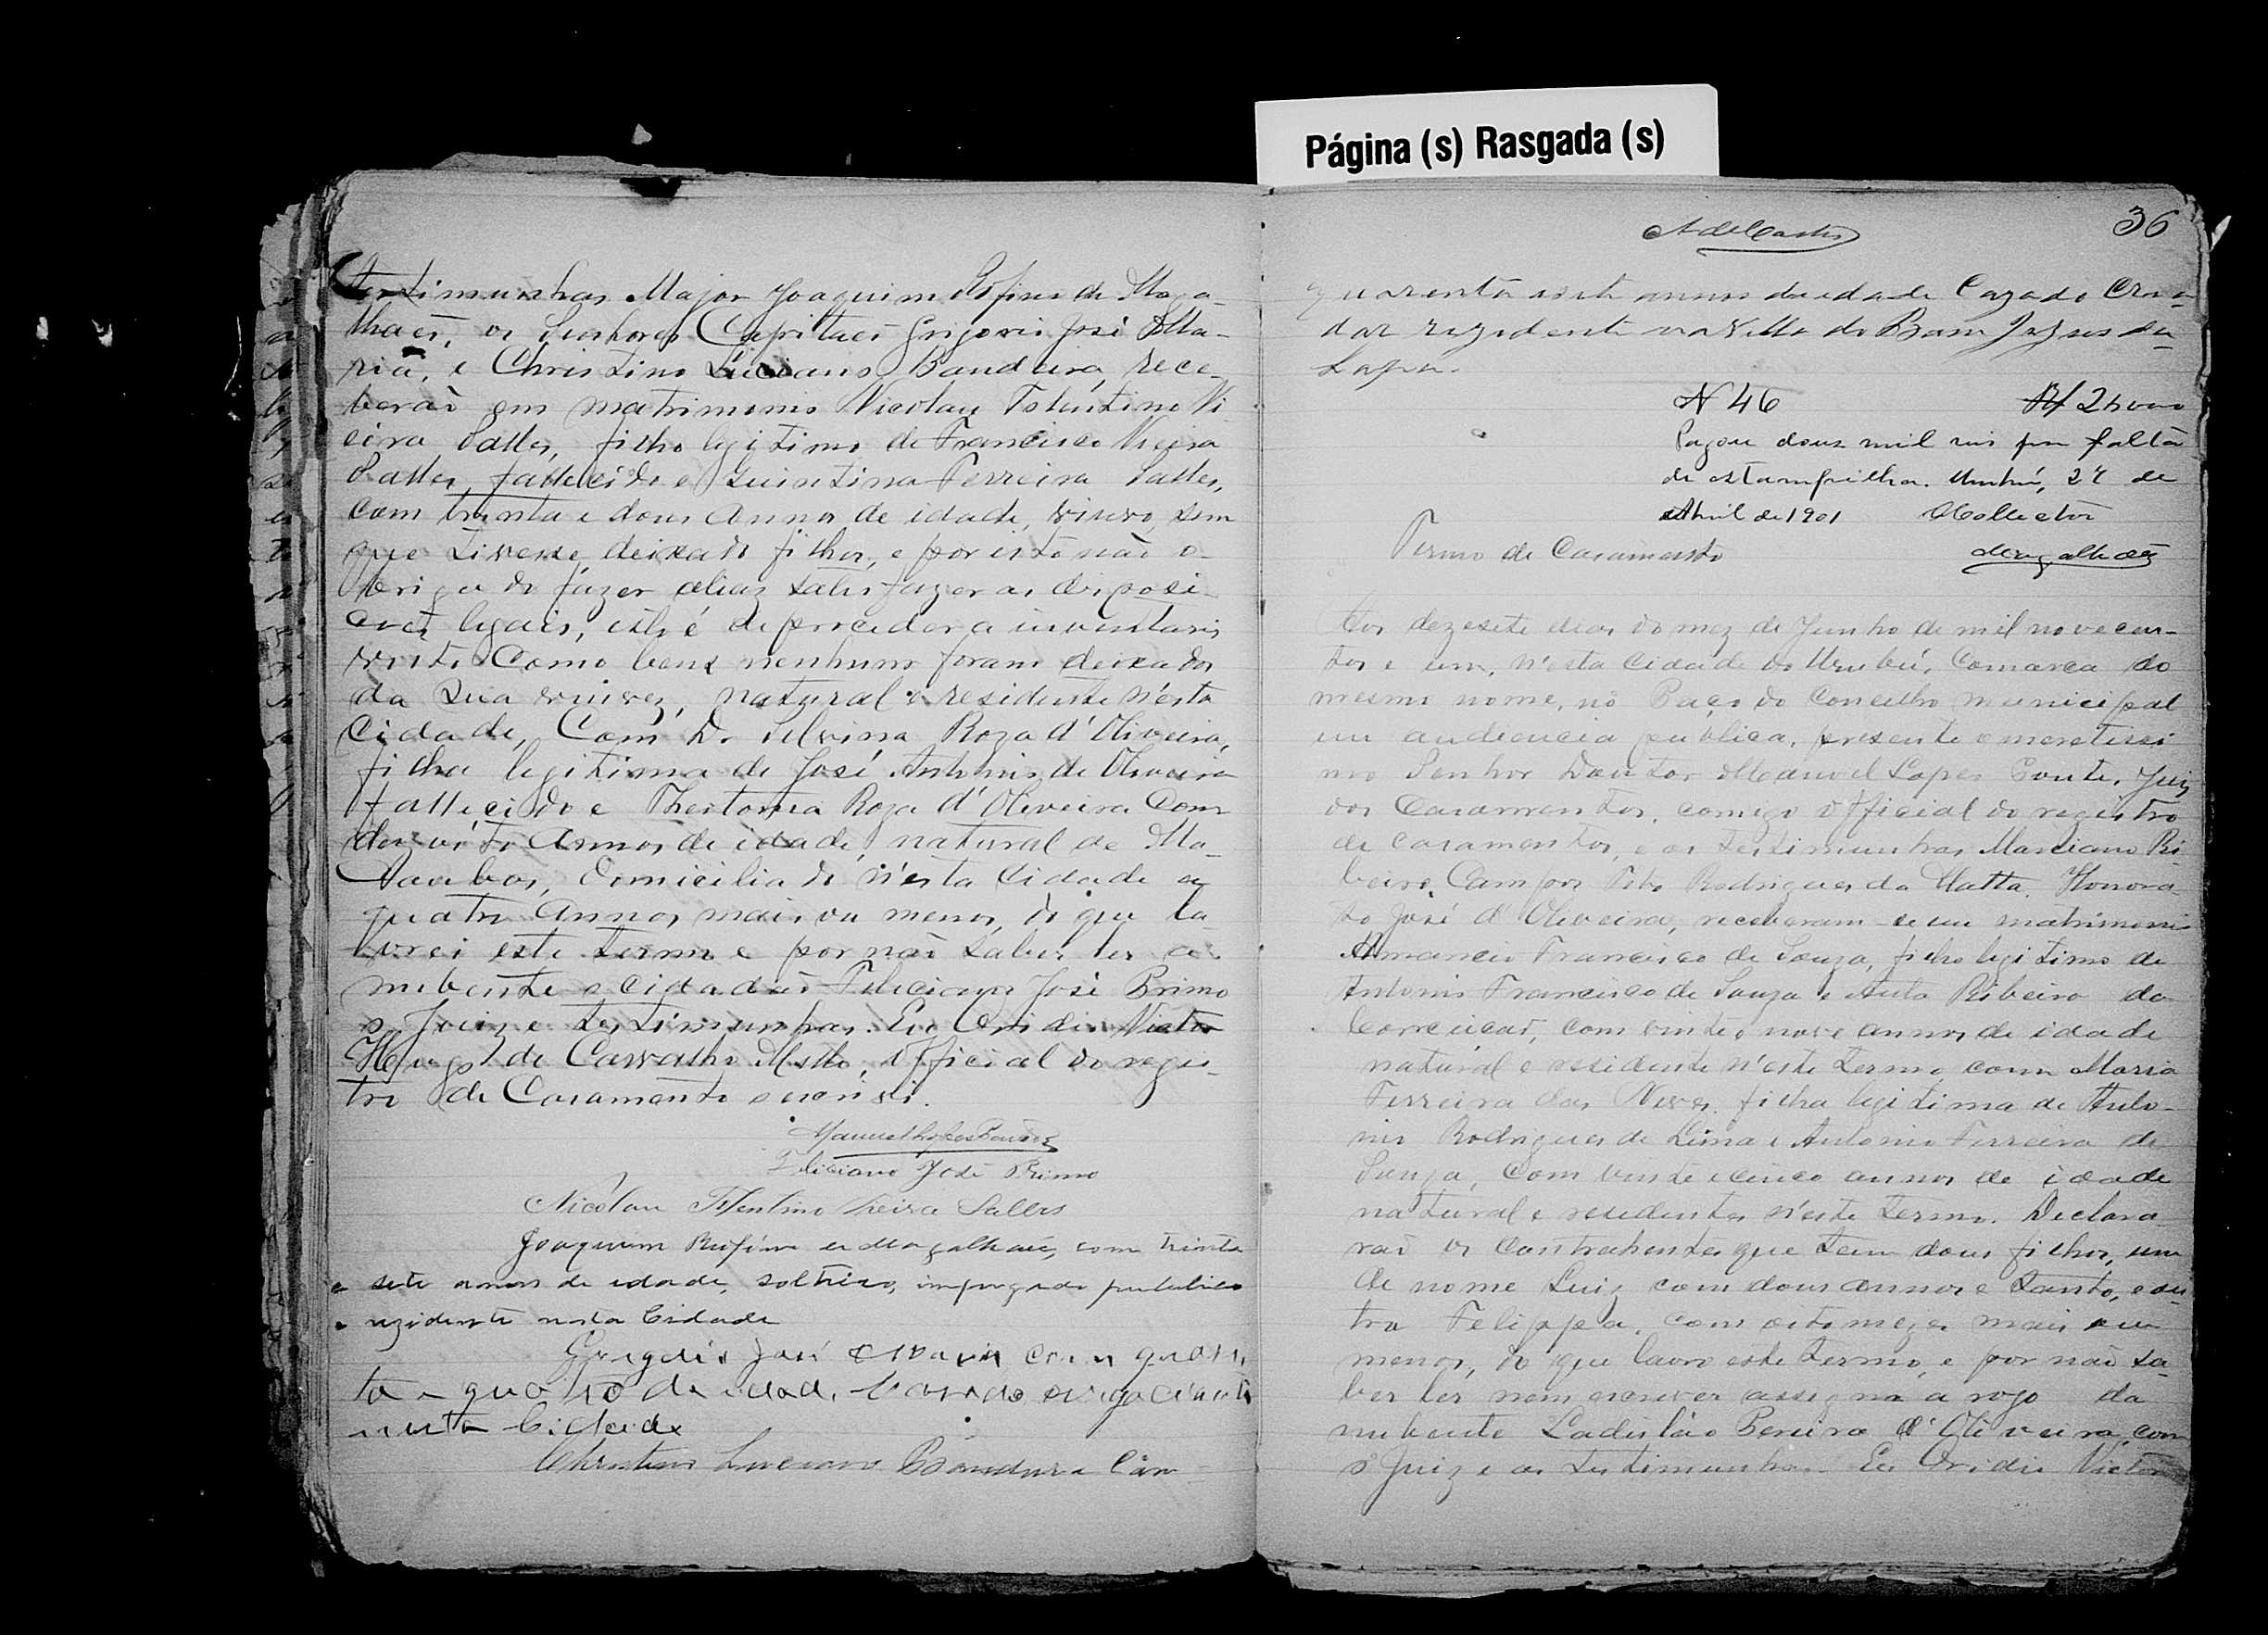 Página (s) Rasgada (s)
testimunhas Major Joaquim Rofino de Maga-
lhaẽs, os Senhores Capitaẽs Grigorio José Ma-
ria, e Christino Luciano Bandeira, rece-
beraõ em matrimonio Nicolau Tolentino Vi
eira Salles, filho legitimo de Francisco Vieira
Salles, fallecido e Quintina Ferreira Salles,
com trinta e dous annos de idade, viuvo, sem
que tivesse deixado filhos, e por isto naõ o-
brigado fazer aliaz satisfazer as disposi-
coẽs legais, isto é de proceder a inventario
visto como bens nenhuns foram deixados
da sua viuvez, natural e residente n'esta
Cidade, Com D. Silvina Roza d'Oliveira,
filha legitima de José Antonio de Oliveira
fallecido e Theotonia Roza d'Oliveira com
desoito annos de idade, natural de Ma-
caubas, domiciliada n'esta Cidade a
quatro annos mais ou menos, do que la-
vrei este termo e por naõ saber ler a
nubente o Cidadaõ Feliciano José Primo
o Juiz e testimunhas. Eu Ovidio Victor
Hugo de Carvalho Mello, official do regis-
tro de Casamento escrivi.
Manuel Lopes Pontes
Feliciano José Primo
Nicolau Tolentino Vieira Salles
Joaquim Rufino de Magalhaẽs, com trinta
e sete annos de edade, solteiro, impregado publico
rezidente nesta Cidade
Grigorio José Maria com quaren
ta e quatro de idade Casado negociante
nesta Cidade
Christino Luciano Bandeira Com
36
A de Castro
quarenta e sete annos de idade Cazado Cria
dor rezidente na Villa do Bom Jezus da
Lapa.
N 46 R/ 2$000
Pagou dous mil reis por falta
de estampilha. Urubú, 27 de
Abril de 1901 O Collector
Magalhaẽs
Termo de Casamento
Aos dezesete dias do mez de Junho de mil novecen-
tos e um, n'esta Cidade do Urubú, Comarca do
mesmo nome, no Paço do Concelho municipal
em audiencia publica, presente o meretissi
mo Senhor Doutor Manoel Lopes Pontes, Juiz
dos Casamentos, comigo official do registro
de casamentos, e as testimunhas Marciano Ri-
beiro Campos Tito Rodrigues da Matta, Honora-
to José d'Oliveira, receberam-se em matrimonio
Amancio Francisco de Souza, filho legitimo de
Antonio Francisco de Souza e Anta Ribeiro da
Conceicaõ, com vinte e nove annos de idade
natural e residente n'este termo, com Maria
Ferreira das Neves, filha legitima de Anto-
nio Rodrigues de Lima e Antonia Ferreira de
Souza, com vinte e cinco annos de idade
natural e residente n'este termo. Declara-
raõ os Contrahentes que tem dous filhos, um
de nome Luiz com dous annos e tanto, e ou
tra Felippa, com oito mezes mais ou
menos, do que lavro este termo, e por naõ sa-
ber ler nem escrever assigna a rogo da
nubente Ladisláo Pereira d'Oliveira, com
o Juiz e as testimunhas. Eu Ovidio Victor